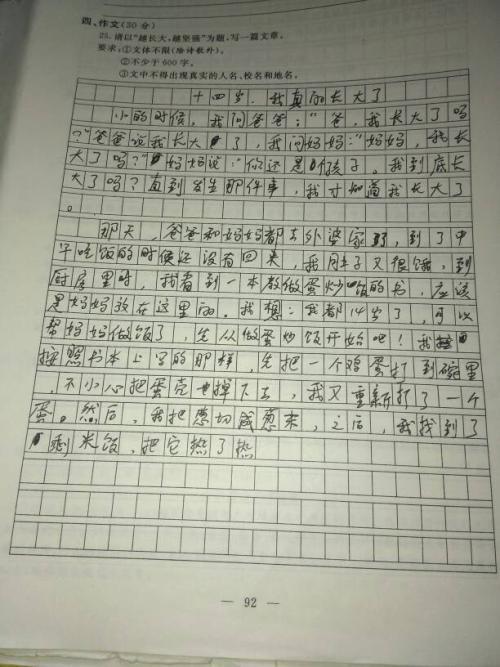 四、作文(30分)
25. 请以“越长大,越坚强”为题,写一篇文章。
要求:①文体不限(除诗歌外)。
②不少于600字。
③文中不得出现真实的人名、校名和地名。
十四岁,我真的长大了
小的时候,我问爸爸:“爸,我长大了吗
?”爸爸说我长大了,我问妈妈:“妈妈,我长
大了吗?”妈妈说:“你还是个孩子。我到底长
大了吗?直到发生那件事,我才知道我长大了
。
那天,爸爸和妈妈都去外婆家了,到了中
午吃饭的时候还没有回来,我肚子又很饿,到
厨房里时,我看到一本教做蛋炒饭的书,应该
是妈妈放在这里的。我想:我都14岁了,可以
帮妈妈做饭了,先从做蛋炒饭开始吧!我
按照书本上写的那样,先把一个鸡蛋打到碗里
,不小心把蛋壳也掉下去,我又重新打了一个
蛋。然后,我把葱切成葱末,之后,我找到了
剩米饭,把它热了热
— 92 —